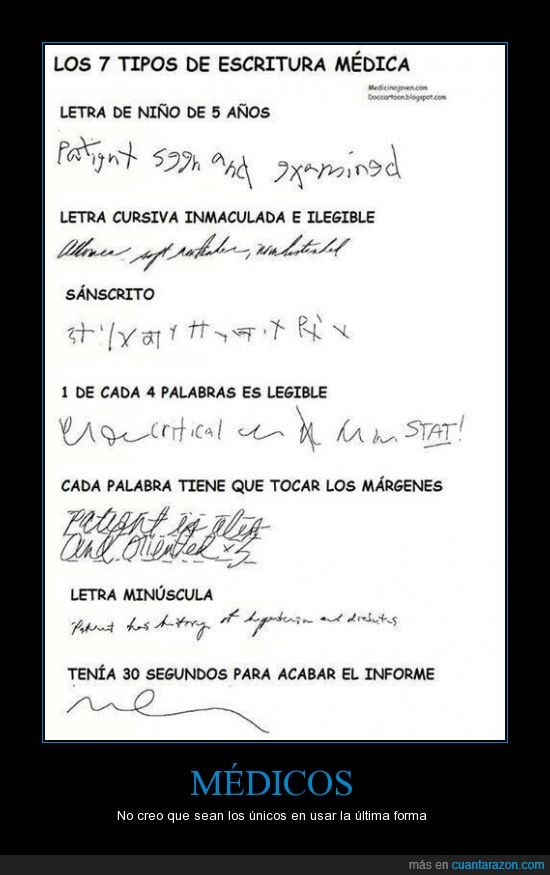 LOS 7 TIPOS DE ESCRITURA MÉDICA
Medicinajoven.com
Doccartoon.blogspot.com
LETRA DE NIÑO DE 5 AÑOS
Patignt sggn and gxamingd
LETRA CURSIVA INMACULADA E ILEGIBLE
SÁNSCRITO
1 DE CADA 4 PALABRAS ES LEGIBLE
critical STAT!
CADA PALABRA TIENE QUE TOCAR LOS MÁRGENES
Patient is
and oriented x3
LETRA MINÚSCULA
Patient has history of hypertension and diabetes
TENÍA 30 SEGUNDOS PARA ACABAR EL INFORME
MÉDICOS
No creo que sean los únicos en usar la última forma
más en cuantarazon.com